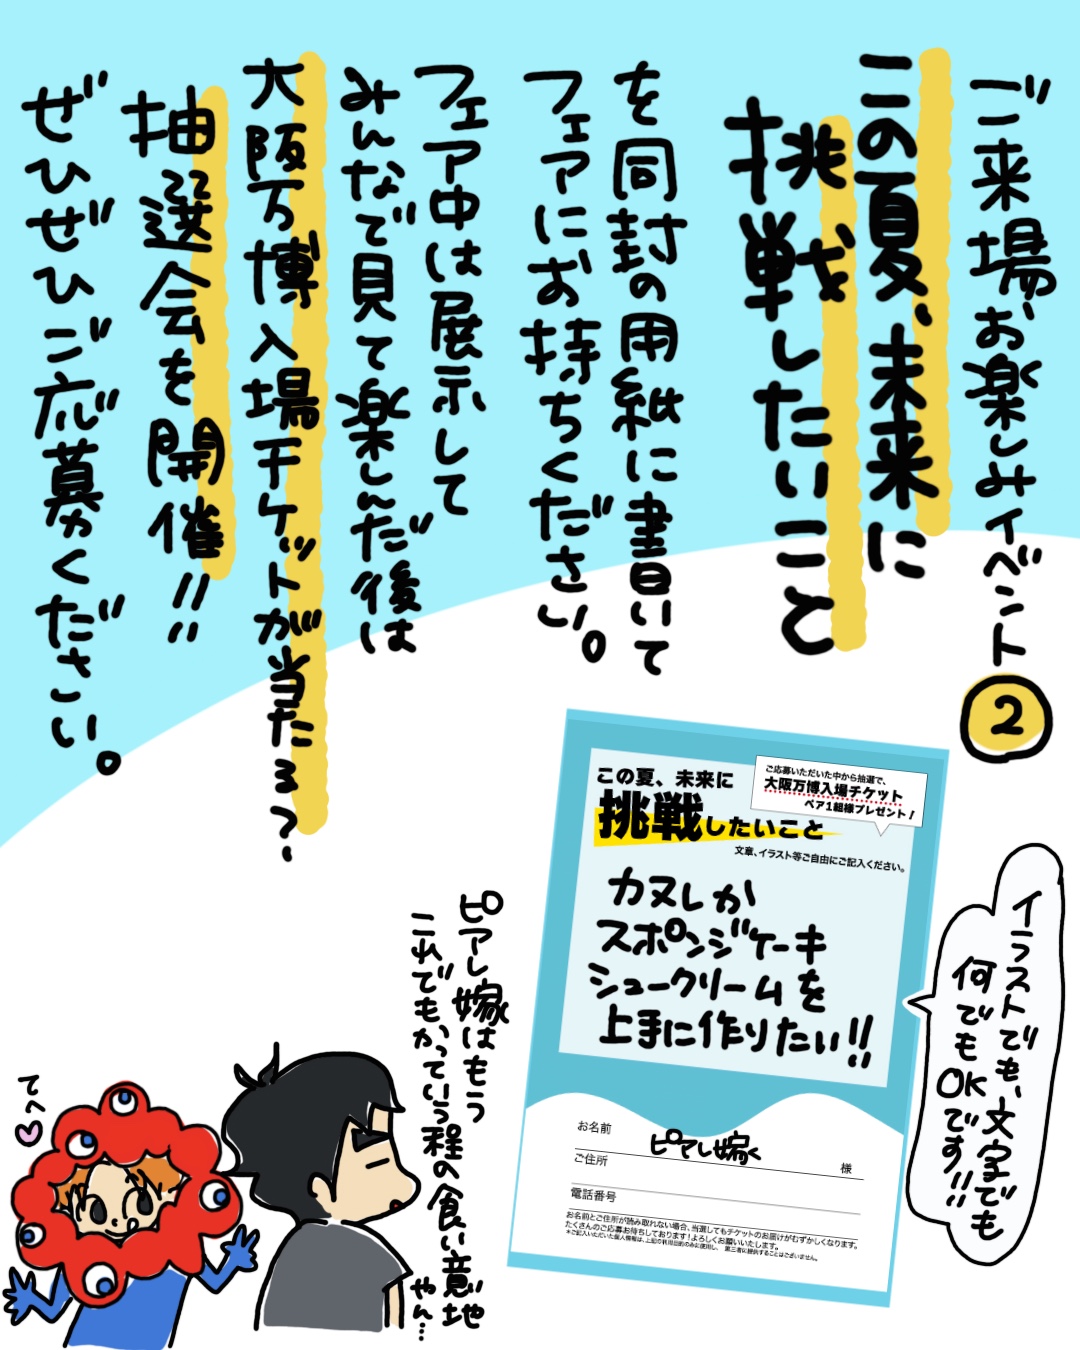 ご来場お楽しみイベント②
この夏、未来に
挑戦したいこと
を同封の用紙に書いて
フェアにお持ちください。
フェア中は展示して
みんなで見て楽しんだ後は
大阪万博入場チケットが当たる？、
抽選会を開催!!
ぜひぜひご応募ください。
この夏、未来に
挑戦したいこと
ご応募いただいた中から抽選で、
大阪万博入場チケット
ペア1組様プレゼント！
文章、イラスト等ご自由にご記入ください。
カヌレか
スポンジケーキ
シュークリームを
上手に作りたい!!
お名前
ピアレ嫁
様
ご住所
電話番号
お名前とご住所が読み取れない場合、当選してもチケットのお届けがむずかしくなります。
たくさんのご応募お待ちしております！よろしくお願いいたします。
＊ご記入いただいた個人情報は、上記の利用目的のみに使用し、第三者に提供することはございません。
イラストでも、文字でも
何でもOKです!!
ピアレ嫁はもう
これでもかっていう程の食い意地
やん…
てへ